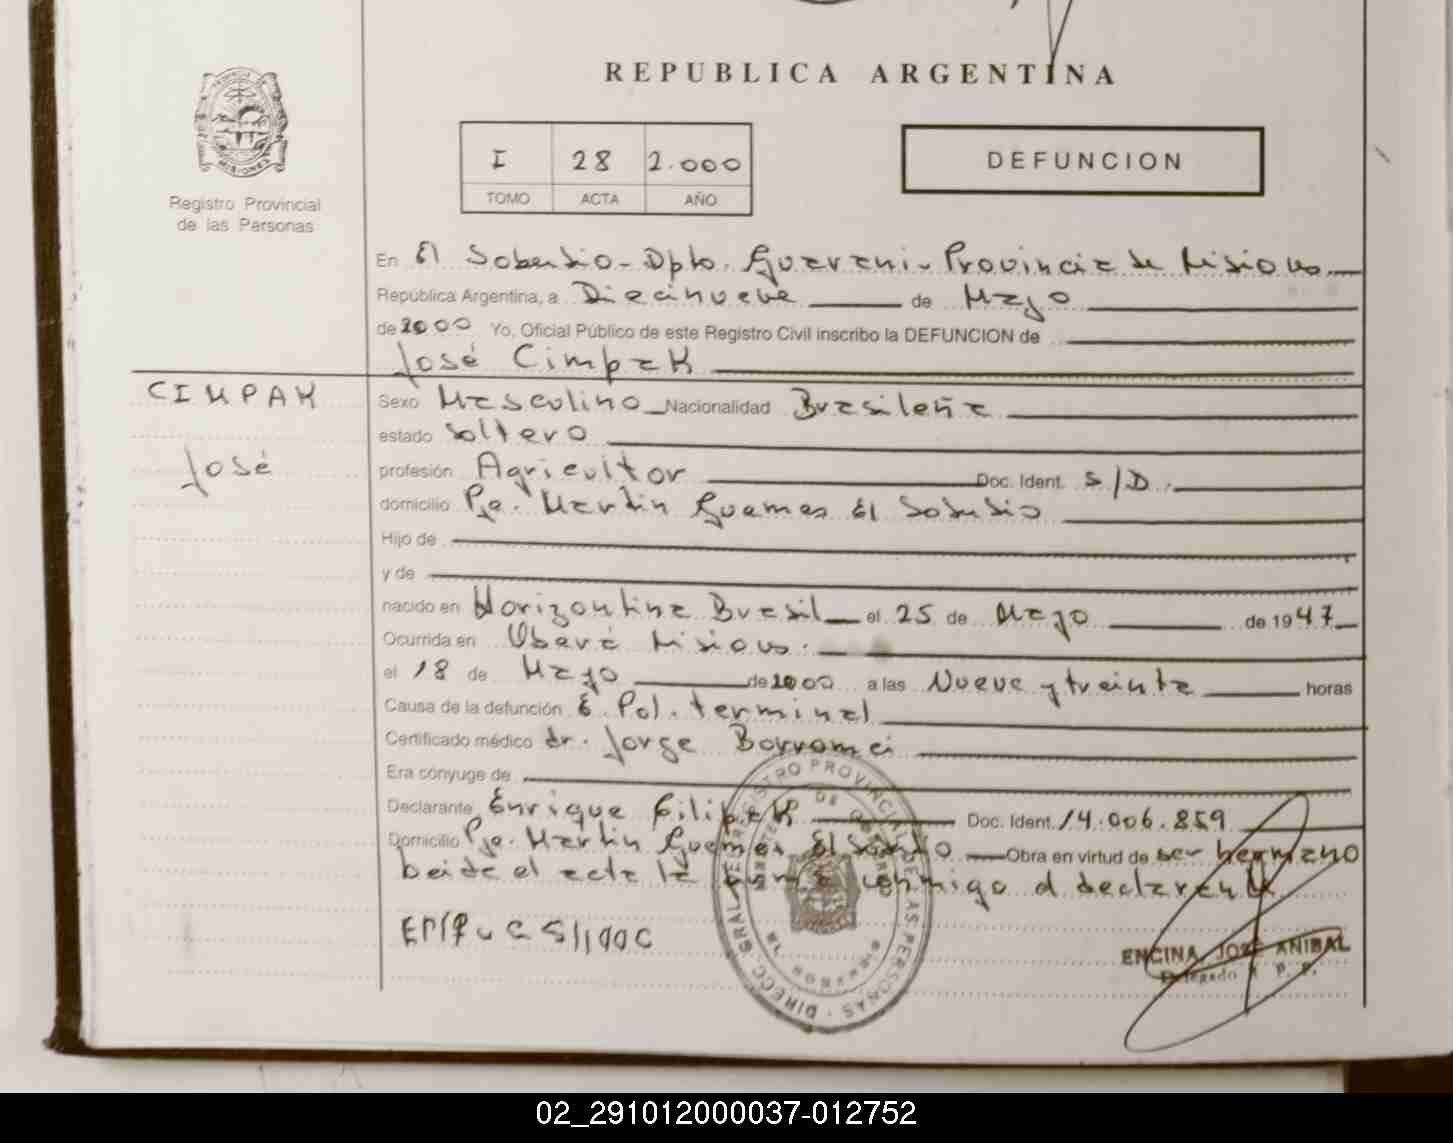 REPUBLICA ARGENTINA
I 28 2.000
TOMO ACTA AÑO
DEFUNCION
MISIONES
Registro Provincial
de las Personas
En El Soberbio - Dpto. Guarani - Provincia de Misiones
República Argentina, a Diecinueve de Mayo
de 2000 Yo, Oficial Público de este Registro Civil inscribo la DEFUNCION de
José Cimpak
CIMPAK
José
Sexo Masculino Nacionalidad Brasileña
estado Soltero
profesión Agricultor Doc. Ident. S/D.
domicilio Pje. Martin Guemes El Soberbio
Hijo de
y de
nacido en Horizontina Brasil el 25 de Mayo de 1947
Ocurrida en Oberá Misiones.
el 18 de Mayo de 2000 a las Nueve y treinta horas
Causa de la defunción E. Pol. terminal
Certificado médico dr. Jorge Borromei
Era cónyuge de
Declarante Enrique Doc. Ident. 14.006.859
Domicilio Pje. Martin Guemes El Soberbio Obra en virtud de ser hermano
leida el acta la firma conmigo el declarante
ENCINA JOSE ANIBAL
Delegado R. P. P.
DIRECC. GRAL. DEL REGISTRO PROVINCIAL DE LAS PERSONAS
02_291012000037-012752